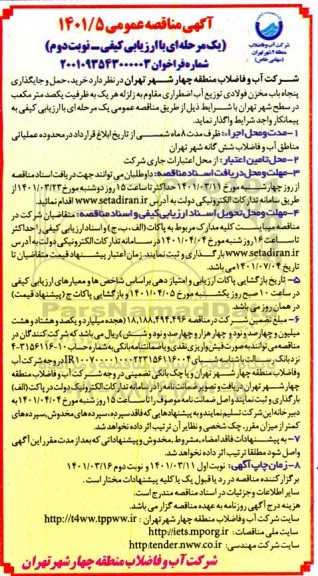 آگهی مناقصه عمومی ۱۴۰۱/۵
(یک مرحله ای با ارزیابی کیفی - نوبت دوم)
شماره فراخوان ۲۰۰۱۰۹۳۵۴۳۰۰۰۰۰۳
شرکت آب و فاضلاب
منطقه ۴ شهر تهران
(سهامی خاص)
شرکت آب و فاضلاب منطقه چهار شهر تهران در نظر دارد خرید، حمل و جایگذاری
پنجاه باب مخزن فولادی توزیع آب اضطراری مقاوم به زلزله هر یک به ظرفیت یکصد متر مکعب
در سطح شهر تهران با شرایط ذیل از طریق مناقصه عمومی یک مرحله ای با ارزیابی کیفی به
پیمانکار واجد شرایط واگذار نماید.
۱- مدت و محل اجراء: ظرف مدت ۸ ماه شمسی از تاریخ ابلاغ قرارداد در محدوده عملیاتی
مناطق آب و فاضلاب شش گانه شهر تهران
۲- محل تامین اعتبار: از محل اعتبارات جاری شرکت
۳- مهلت و محل دریافت اسناد مناقصه: داوطلبان می توانند جهت دریافت اسناد مناقصه
از روز چهارشنبه مورخ ۱۴۰۱/۰۳/۱۱ حداکثر تا ساعت ۱۵ روز دوشنبه مورخ ۱۴۰۱/۰۳/۲۳ از
طریق سامانه تدارکات الکترونیکی دولت به آدرس www.setadiran.ir اقدام نمایند.
۴- مهلت و محل تحویل اسناد ارزیابی کیفی و اسناد مناقصه: متقاضیان شرکت در
مناقصه میبایست کلیه مدارک مربوط به پاکات (الف، ب، ج) و اسناد ارزیابی کیفی را حداکثر
تا ساعت ۱۶ روز شنبه مورخ ۱۴۰۱/۰۴/۰۴ در سامانه تدارکات الکترونیکی دولت به آدرس
www.setadiran.ir بارگذاری و ثبت نمایند. زمان اعتبار پیشنهاد قیمت متقاضیان تا
تاریخ ۱۴۰۱/۰۷/۰۴ می باشد.
۵- تاریخ بازگشایی پاکات ارزیابی و امتیاز دهی بر اساس شاخص ها و معیارهای ارزیابی کیفی
در ساعت ۱۰ صبح روز یکشنبه مورخ ۱۴۰۱/۰۴/۰۵ و بازگشایی پاکات ج (پیشنهاد قیمت)
در همان روز می باشد.
۶- مبلغ تضمین شرکت در مناقصه ۱۸,۱۸۸,۴۹۴,۴۹۶ (هجده میلیارد و یکصد و هشتاد و هشت
میلیون و چهارصد و نود و چهار هزار و چهارصد و نود و شش) ریال می باشد که شرکت کنندگان در
مناقصه می توانند به صورت فیش واریز نقدی و یا ضمانتنامه بانکی به شماره حساب
نزد بانک رسالت با شناسه شبای در وجه شرکت آب و
فاضلاب منطقه چهار شهر تهران و یا چک بانکی تضمینی در وجه شرکت آب و فاضلاب منطقه
چهار شهر تهران دریافت و تصویر ضمانتنامه را از سامانه تدارکات الکترونیک دولت در پاکت (الف)
بارگذاری و ثبت نمایند و اصل ضمانت نامه موصوف را تا ساعت ۱۵ روز شنبه مورخ ۱۴۰۱/۰۴/۰۴ به
دبیرخانه این شرکت تسلیم نمایند و به پیشنهادهایی که فاقد سپرده، سپرده های مخدوش، سپرده های
کمتر از میزان مقرر، چک شخصی و نظایر آن ترتیب اثر داده نخواهد شد.
۷- به پیشنهادات فاقد امضاء، مشروط، مخدوش و پیشنهاداتی که بعد از مدت مقرر این آگهی
واصل شود مطلقا ترتیب اثر داده نخواهد شد.
۸- زمان چاپ آگهی: نوبت اول ۱۴۰۱/۰۳/۱۱ و نوبت دوم ۱۴۰۱/۰۳/۱۶
برگزار کننده مناقصه در رد یا قبول یک یا کلیه پیشنهادات مختار است.
سایر اطلاعات و جزئیات در اسناد مناقصه مندرج است.
هزینه درج آگهی روزنامه به عهده مناقصه گزار می باشد.
سایت شرکت آب و فاضلاب منطقه چهار شهر تهران: http://t4ww.tppww.ir
سایت ملی مناقصات: http://iets.mporg.ir
سایت شرکت مهندسی: http:tender.nww.co.ir
شرکت آب و فاضلاب منطقه چهار شهر تهران